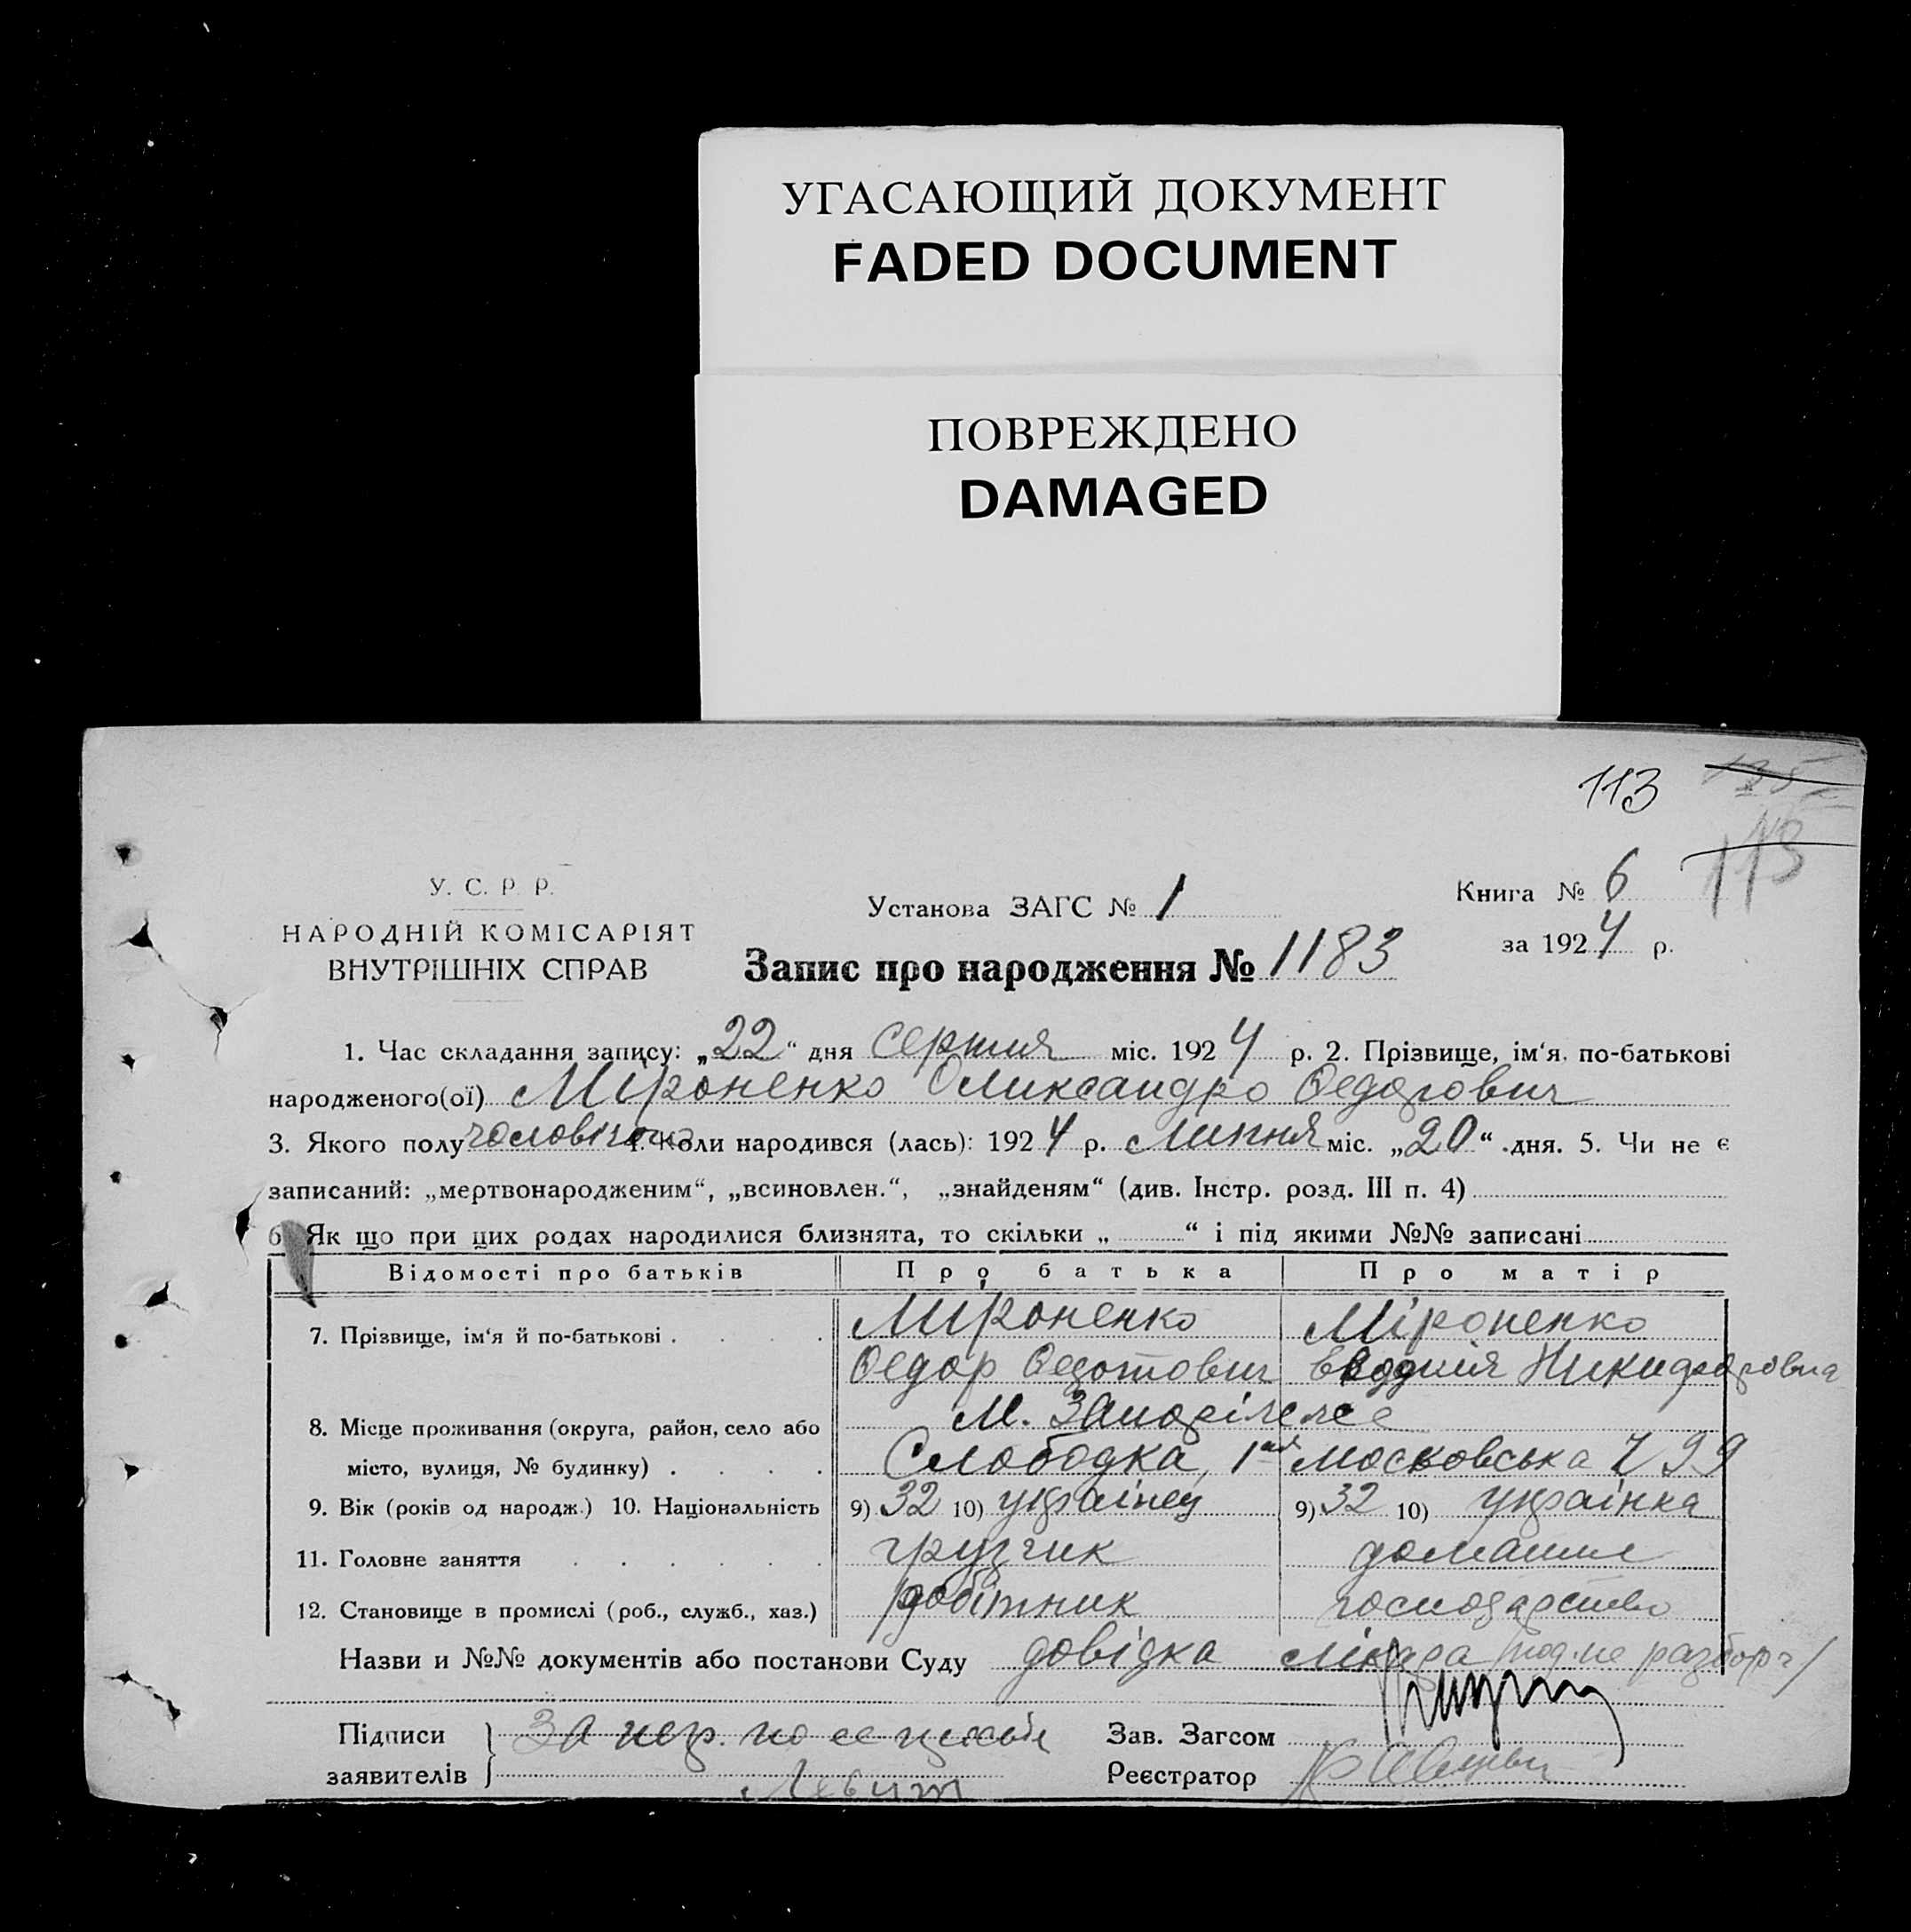 УГАСАЮЩИЙ ДОКУМЕНТ
FADED DOCUMENT
ПОВРЕЖДЕНО
DAMAGED
113 135
113
У. С. Р. Р.
НАРОДНІЙ КОМІСАРІЯТ
ВНУТРІШНІХ СПРАВ
Установа ЗАГС № 1
Книга № 6
за 1924 р.
Запис про народження № 1183
1. Час складання запису: „22“ дня серпня міс. 1924 р. 2. Прізвище, ім‘я, по-батькові
народженого(ої) Міроненко Олександро Федорович
3. Якого полу чоловічого 4. Коли народився (лась): 1924 р. Липня міс. „20“ дня. 5. Чи не є
записаний: „мертвонародженим“, „всиновлен.“, „знайденям“ (див. Інстр. розд. III п. 4)
6. Як що при цих родах народилися близнята, то скільки „ “ і під якими №№ записані
Відомості про батьків Про батька Про матір
7. Прізвище, ім‘я й по-батькові . . . . Міроненко Міроненко
Федор Федотович Евдокія Никифоровна
8. Місце проживання (округа, район, село або м. Запоріжжє
місто, вулиця, № будинку) . . . . Слободка, 1ая московська ч 99
9. Вік (років од народж.) 10. Національність 9) 32 10) українец 9) 32 10) українка
11. Головне заняття . . . . . . грузчик домашнє
12. Становище в промислі (роб., служб., хаз.) робітник господарство
Назви и №№ документів або постанови Суду довідка лікара /под. не разбор./
Підписи За нер. по ее
заявителів Левит
Зав. Загсом
Реєстратор